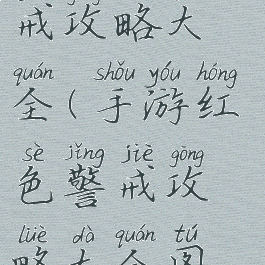 戒攻略大
quán shǒu yóu hóng
全(手游红
sè jǐng jiè gōng
色警戒攻
lüè dà quán tú
略大全图